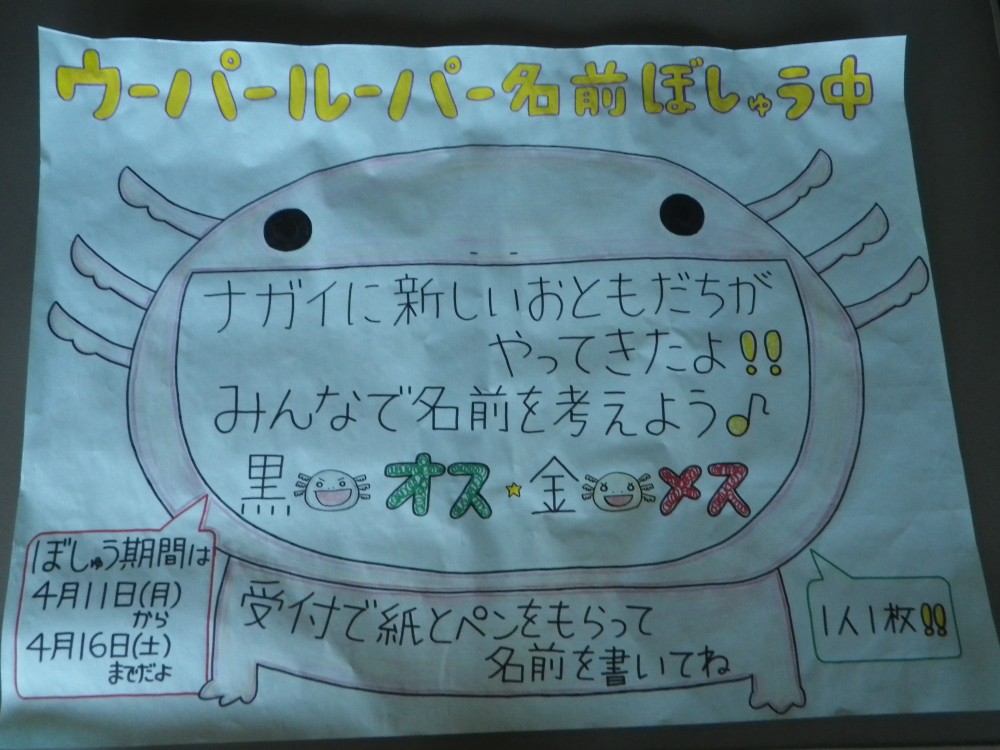 ウーパールーパー名前ぼしゅう中
ナガイに新しいおともだちが
やってきたよ!!
みんなで名前を考えよう♪
黒 オス★金 メス
ぼしゅう期間は
4月11日(月)
から
4月16日(土)
までだよ
受付で紙とペンをもらって
名前を書いてね
1人1枚!!